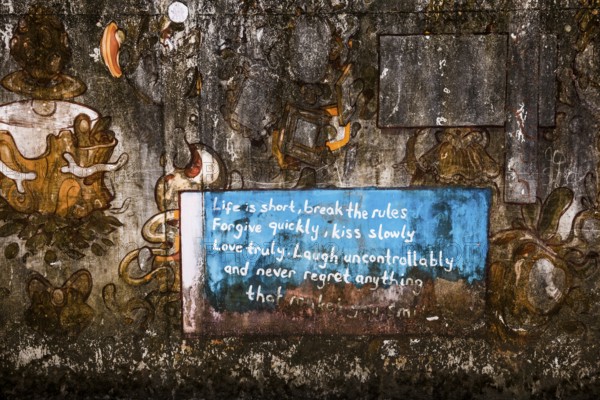 Life is short, break the rules
Forgive quickly, kiss slowly
Love truly. Laugh uncontrollably
and never regret anything
that